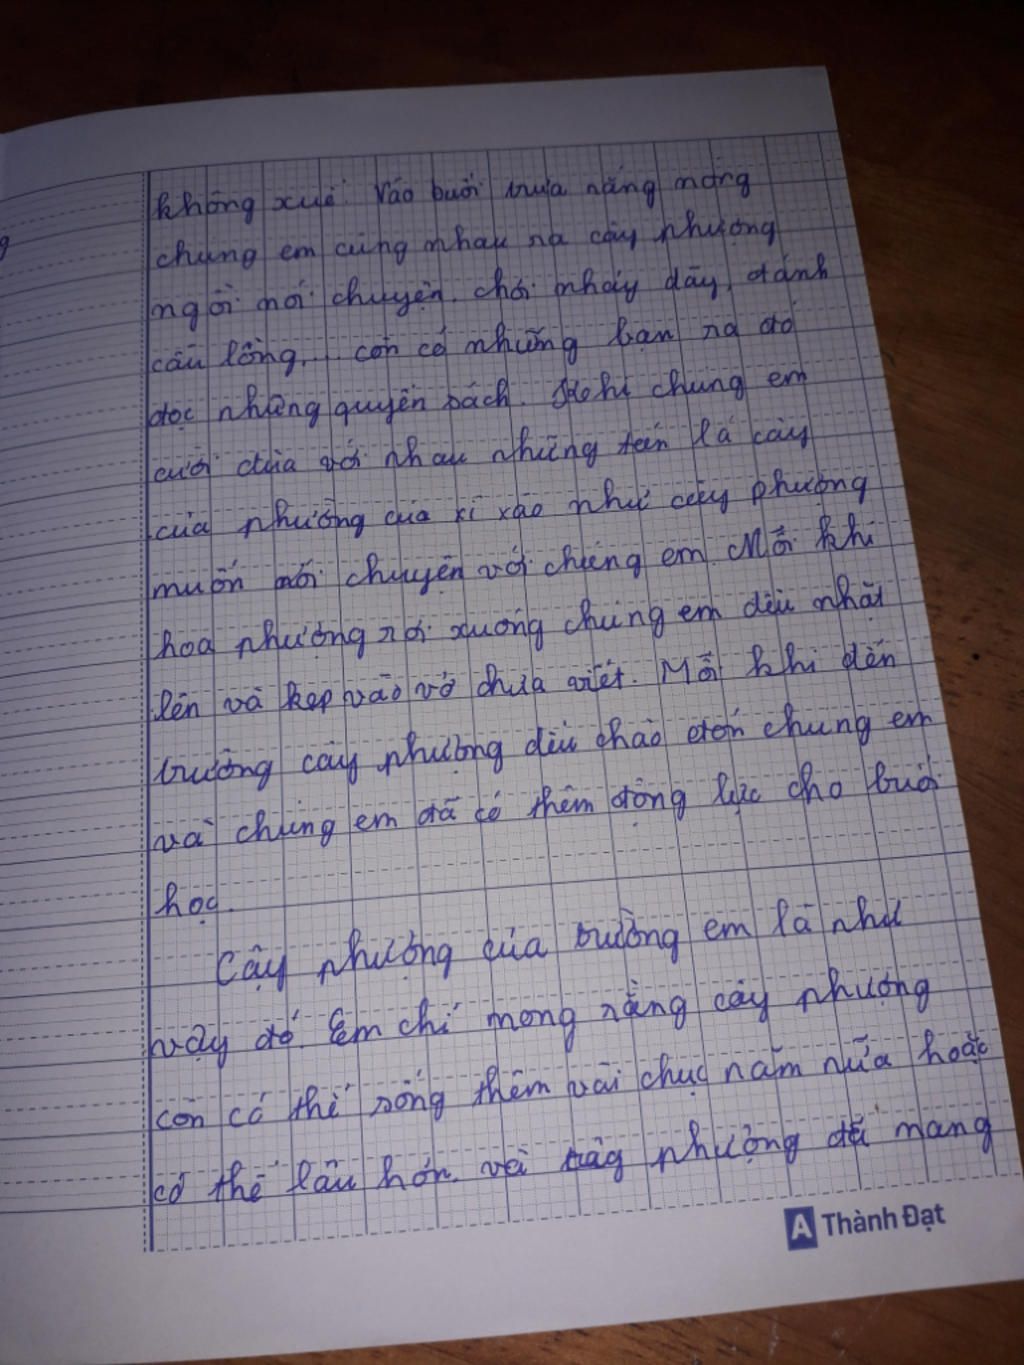 không xuể. Vào buổi trưa nắng móng
chung em cùng nhau ra cây phượng
ngồi nói chuyện, chơi nhảy dây, đánh
cầu lông,... còn có những bạn ra đó
đọc những quyển sách. Khi chung em
cười đùa với nhau những tán lá cây
của phượng cứa xì xào như cây phượng
muốn nói chuyện với chúng em. Mỗi khi
hoa phượng rơi xuống chúng em đều nhặt
lên và kẹp vào vở chưa viết. Mỗi khi đến
trường cây phượng đều chào đón chung em
và chúng em đã có thêm động lực cho buổi
học.
Cây phượng của trường em là như
vậy đó. Em chỉ mong rằng cây phượng
còn có thể sống thêm vài chục năm nữa hoặc
có thể lâu hơn. vì cây phượng đã mang
A Thành Đạt